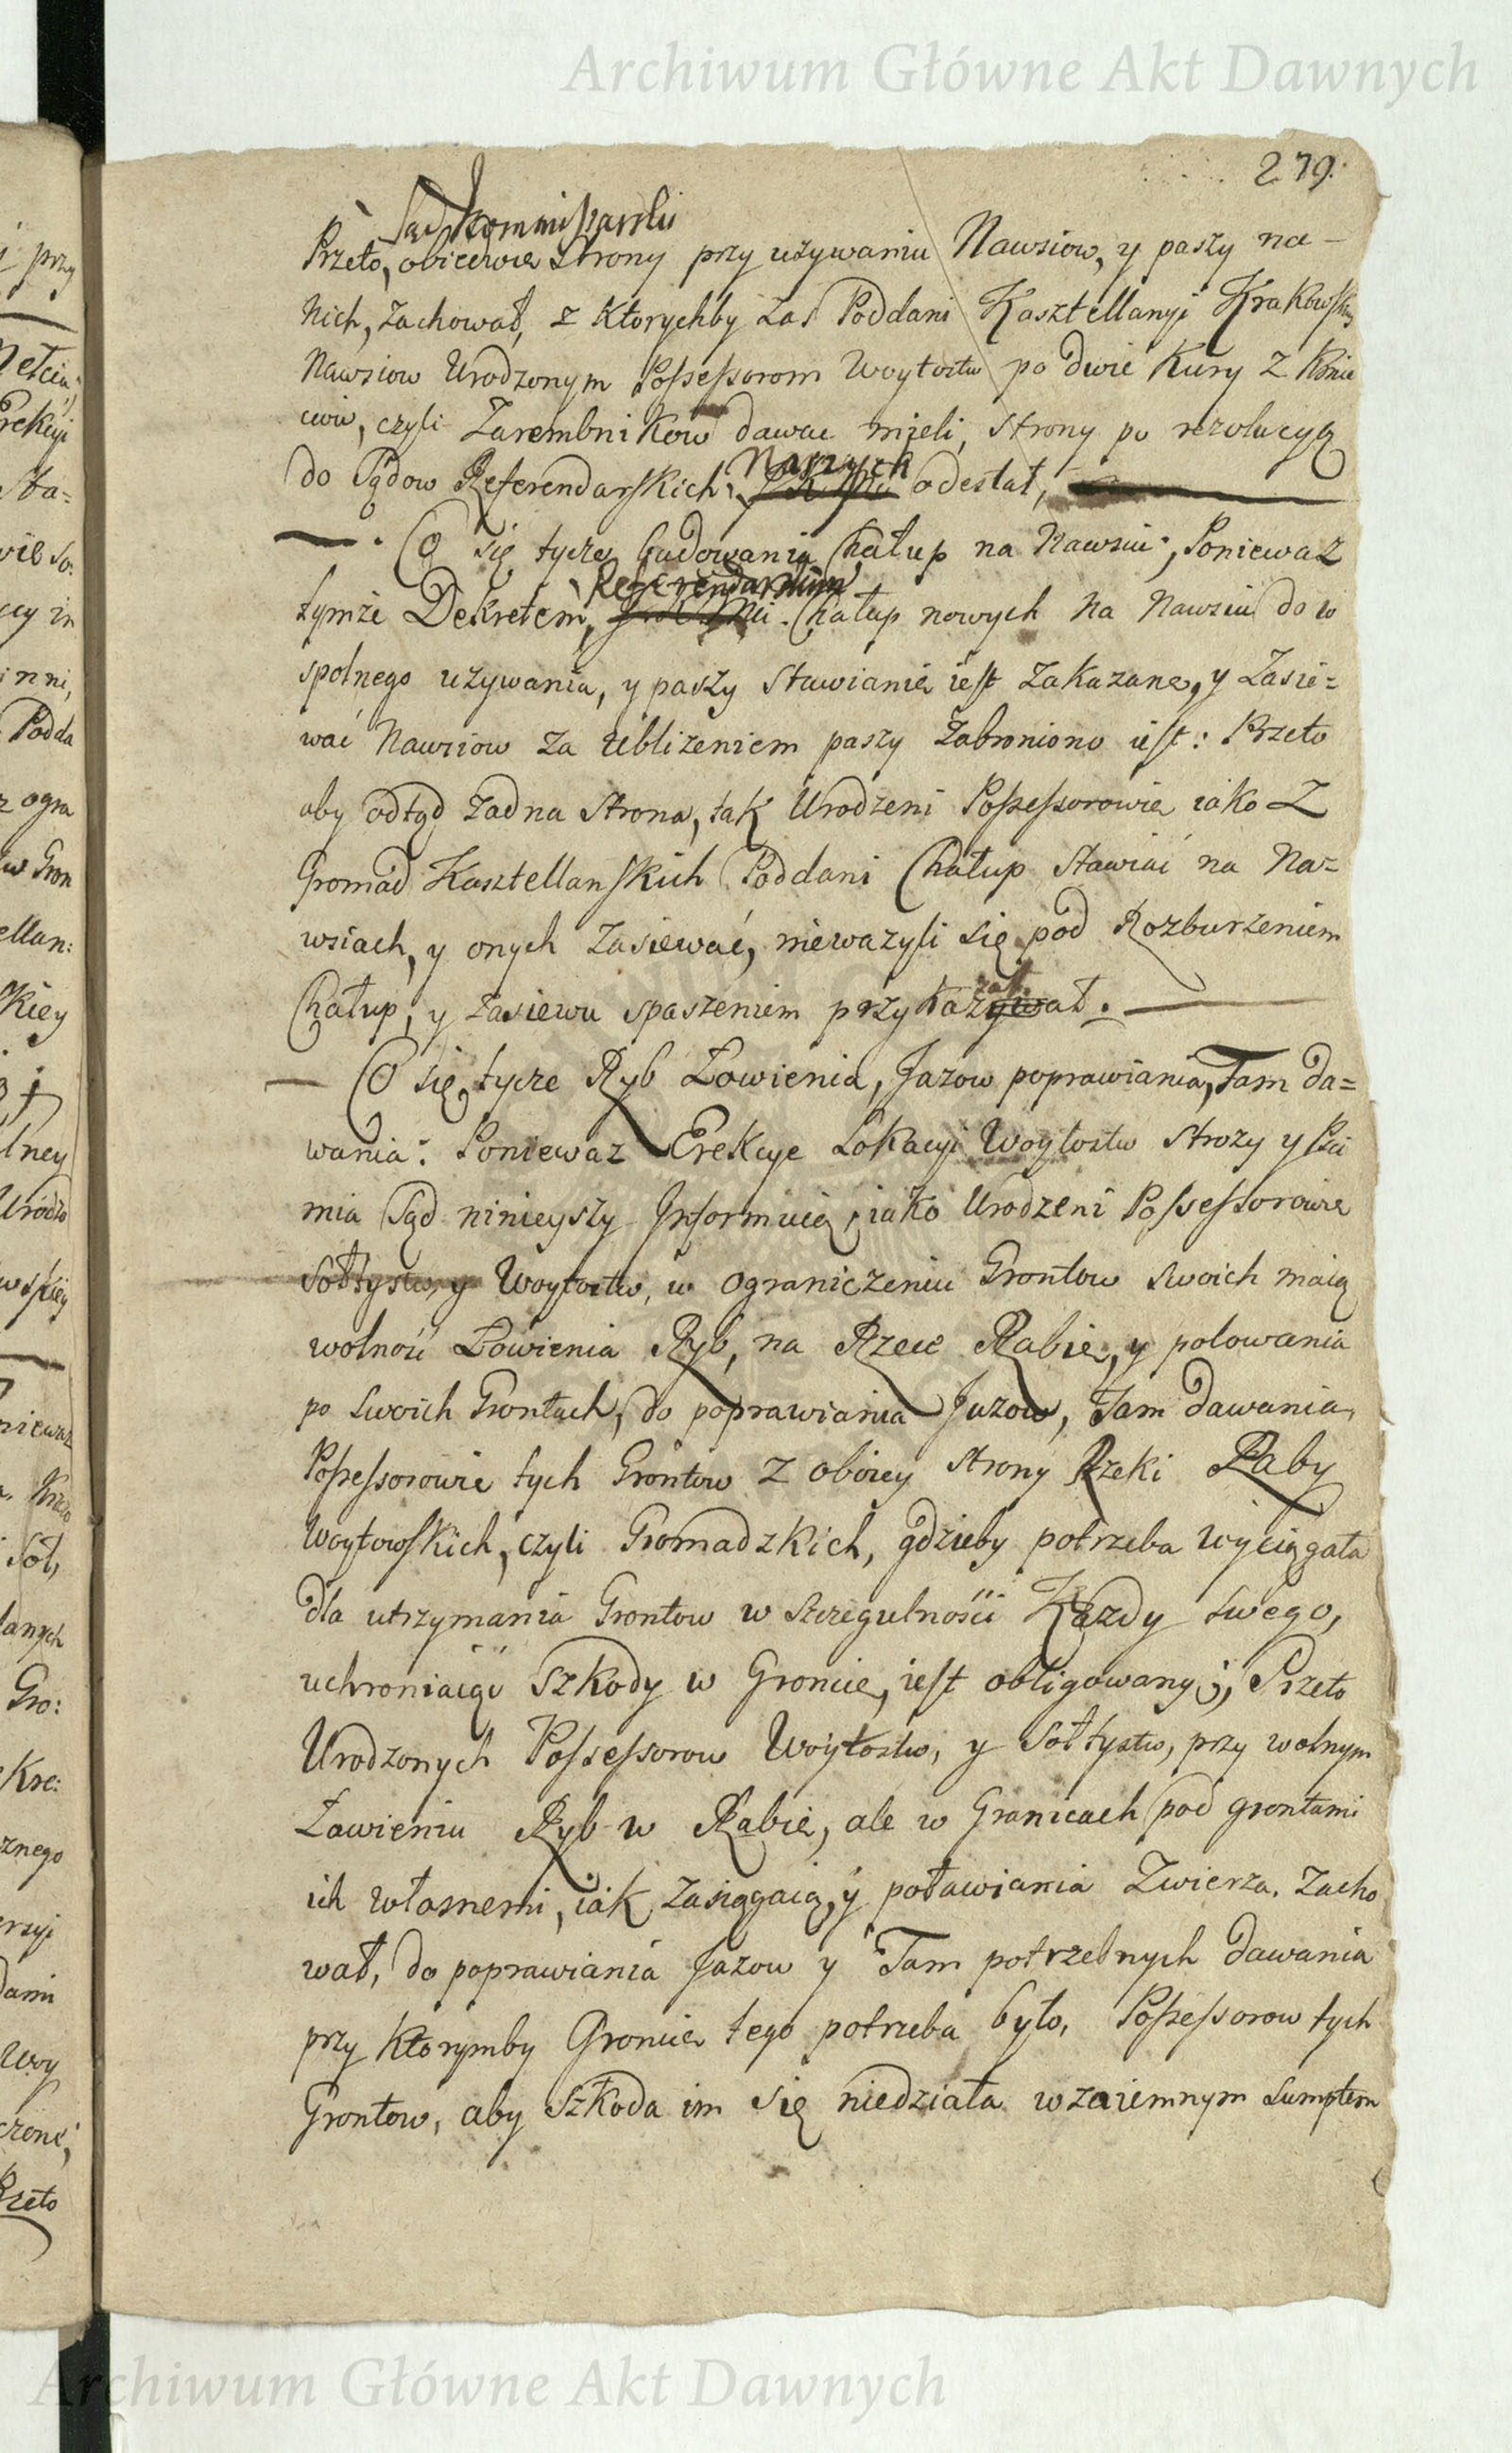 Archiwum Główne Akt Dawnych
279.
Sąd Kommissarski
Przeto, obiedwie Strony przy używaniu Nawsiow, y paszy na-
Nich, Zachował, z Ktorychby zas Poddani Kasztellanyi Krakowskiey
Nawsiow Urodzonym Possessorom Woytostw po dwie Kury z
czyli Zarembnikow dawac mieli, Strony po rezolucyą
do Sądow Referendarskich Naszych odesłał,
Co się tycze budowania Chałup na Nawsiu; Poniewaz
tymże Dekretem, Referendarskim Chałup nowych na Nawsiu do w
spolnego używania, y paszy Stawianie iest zakazane, y Zasie=
wać Nawsiow za ubliżeniem paszy zabroniono iest: Przeto
aby odtąd żadna Strona, tak Urodzeni Possessorowie iako Z
Gromad Kasztellanskich Poddani Chałup Stawiać na Na=
wsiach, y onych Zasiewać, nieważyli się pod Rozburzeniem
Chałup, y zasiewu spaszeniem przykazał.
Co się tycze Ryb Łowienia, Jazow poprawiania, Tam da=
wania: Poniewaz Erekcye Lokacyi Woytostw Strozy y Pci
mia Sąd ninieyszy Informuią, iako Urodzeni Possessorowie
Sołtystw, y Woytostw, w ograniczeniu Grontow Swoich maią
wolność Łowienia Ryb, na Rzece Rabie, y polowania
po Swoich Grontach, do poprawiania Jazow, Tam dawania,
Possessorowie tych Grontow z oboiey Strony Rzeki Raby
Woytowskich, czyli Gromadzkich, gdzieby potrzeba wyciągała
dla utrzymania Grontow w szczegulności Każdy Swego,
uchroniaiąc Szkody w Groncie, iest obligowany; Przeto
Urodzonych Possessorow Woytostw, y Sołtystw, przy wolnym
Łowieniu Ryb w Rabie, ale w Granicach pod grontami
ich własnemi, iak Zasiągaią, y poławiania Zwierza. Zacho
wał, do poprawiania Jazow y Tam potrzebnych dawania
przy Ktorymby Groncie tego potrzeba było, Possessorow tych
Grontow, aby Szkoda im się niedziała wzaiemnym Sumptem
Archiwum Główne Akt Dawnych